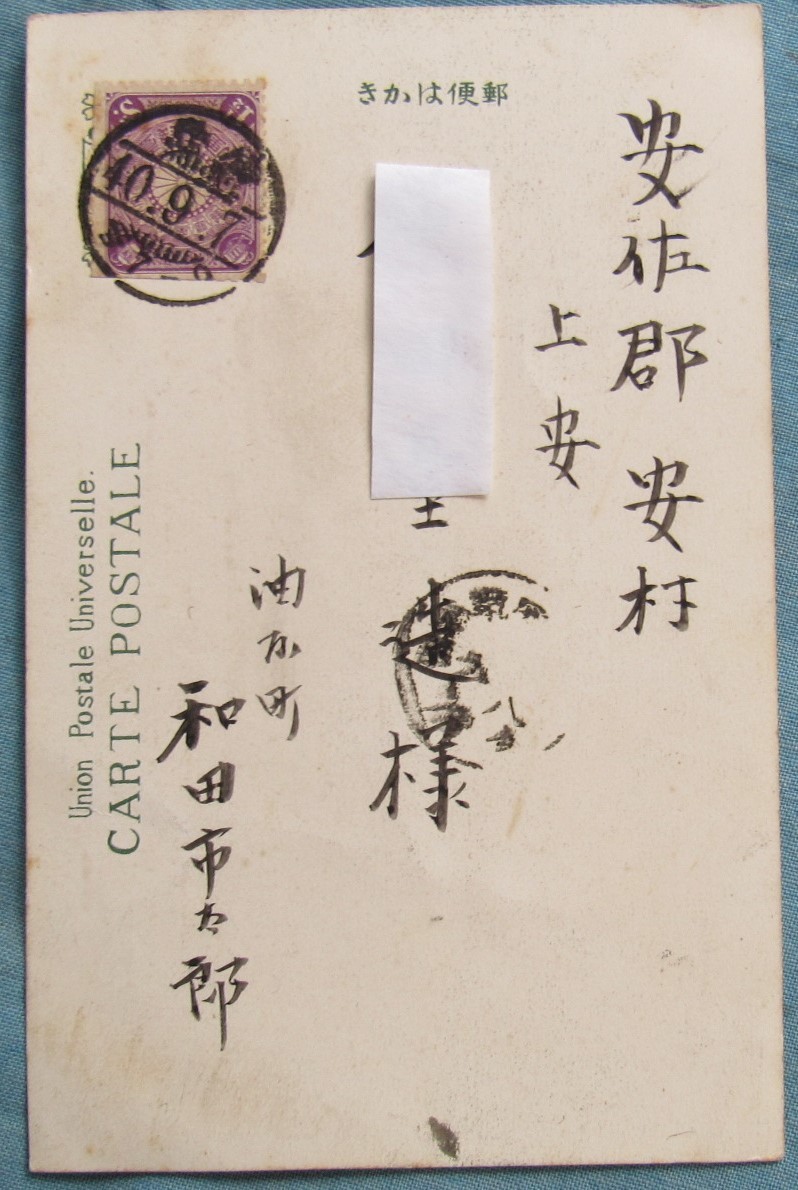 郵便はかき
安佐郡安村
上安
達様
油木町
和田市太郎
Union Postale Universelle.
CARTE POSTALE
10.9.7